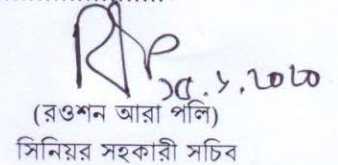 ২০২০
(রওশন আরা পলি)
সিনিয়র সহকারী সচিব